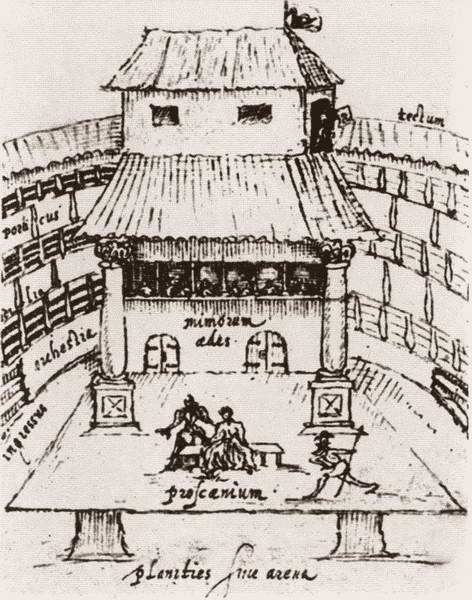 tectum
porticus
orchestra
mimorum
ædes.
ingressus
proscænium.
planities siue arena